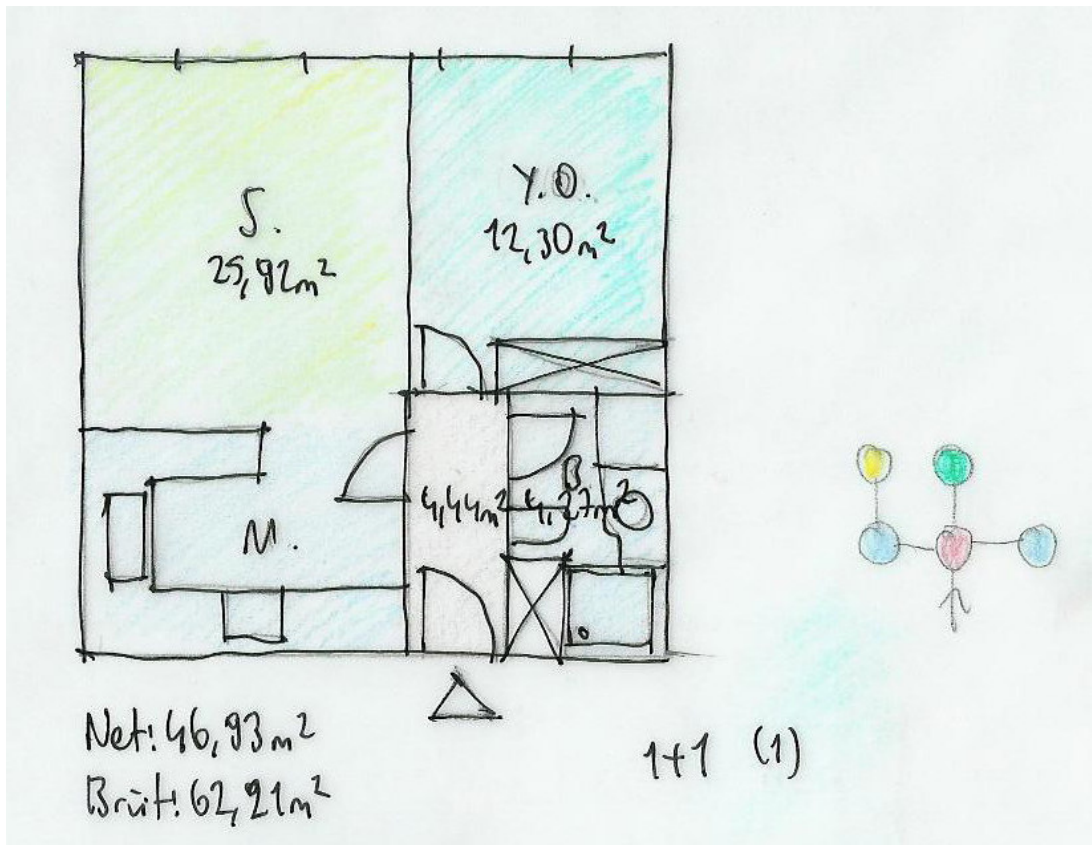 S.
25,92m²
Y.O.
12,30m²
B
4,44m² 4,27m²
M.
Net: 46,93m²
Brüt: 62,21m²
1+1 (1)